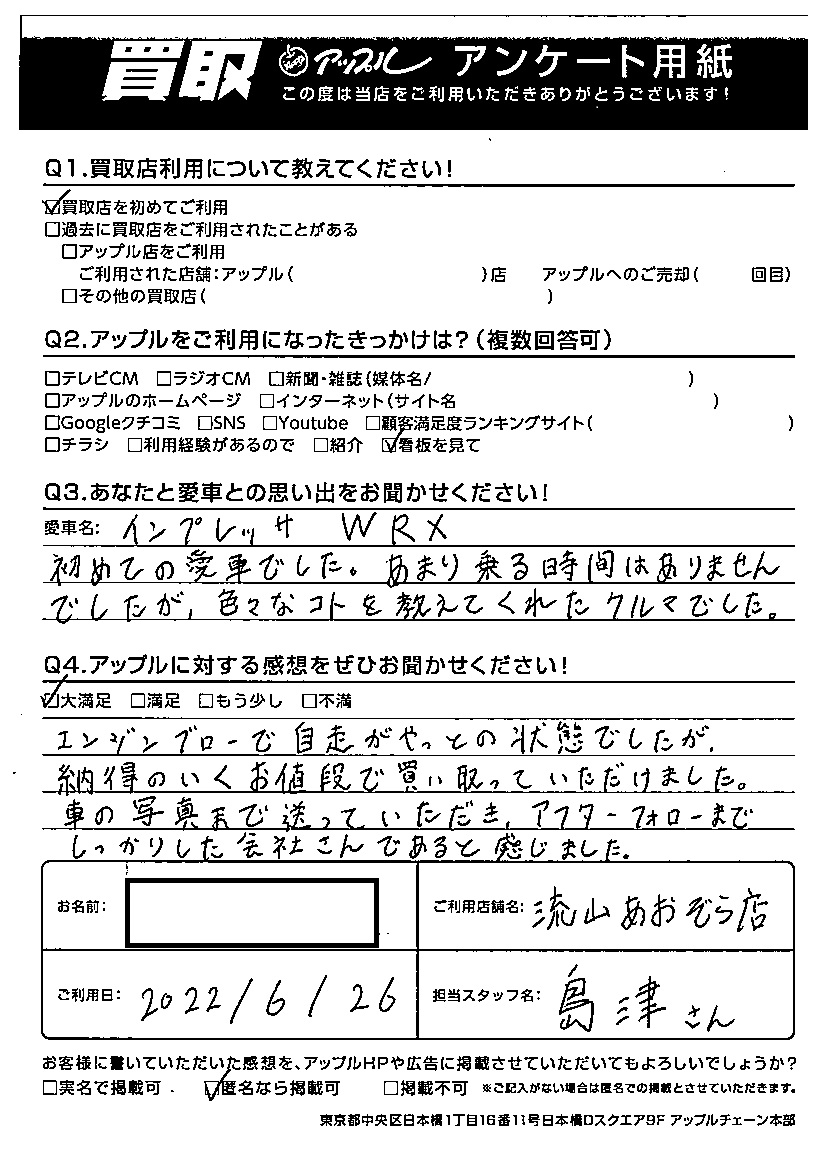 買取 アップル アンケート用紙
この度は当店をご利用いただきありがとうございます!
Q1.買取店利用について教えてください!
☑買取店を初めてご利用
□過去に買取店をご利用されたことがある
□アップル店をご利用
ご利用された店舗:アップル( )店 アップルへのご売却( 回目)
□その他の買取店( )
Q2.アップルをご利用になったきっかけは?(複数回答可)
□テレビCM □ラジオCM □新聞・雑誌(媒体名/ )
□アップルのホームページ □インターネット(サイト名 )
□Googleクチコミ □SNS □Youtube □顧客満足度ランキングサイト( )
□チラシ □利用経験があるので □紹介 ☑看板を見て
Q3.あなたと愛車との思い出をお聞かせください!
愛車名: インプレッサ WRX
初めての愛車でした。あまり乗る時間はありません
でしたが、色々なコトを教えてくれたクルマでした。
Q4.アップルに対する感想をぜひお聞かせください!
☑大満足 □満足 □もう少し □不満
エンジンブローで自走がやっとの状態でしたが、
納得のいくお値段で買い取っていただけました。
車の写真まで送っていただき、アフターフォローまで
しっかりした会社さんであると感じました。
お名前: ご利用店舗名: 流山あおぞら店
ご利用日: 2022/6/26 担当スタッフ名: 島津さん
お客様に書いていただいた感想を、アップルHPや広告に掲載させていただいてもよろしいでしょうか?
□実名で掲載可 ☑匿名なら掲載可 □掲載不可 ※ご記入がない場合は匿名での掲載とさせていただきます。
東京都中央区日本橋1丁目16番11号日本橋Dスクエア9F アップルチェーン本部